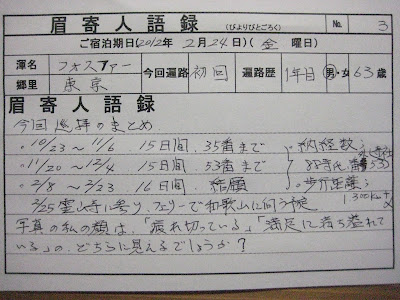 眉寄人語録
(びよりびとごろく)
No.
3
ご宿泊期日(2012年 2月24日)(金 曜日)
渾名 フォスファー
郷里 東京
今回遍路 初回 遍路歴 1年目 男・女 63歳
眉寄人語録
今回巡拝のまとめ
・10/23~11/6 . 15日間. 35番まで
・11/20~12/4 15日間 . 53番まで
・2/8~2/23 . 16日間 . 結願
納経数;
・歩行距離;
1300km
2/25霊山寺に寄り、フェリーで和歌山に向う予定
写真の私の顔は、「疲れ切っている」「満足に満ち溢れて
いる」の、どちらに見えるでしょうか?